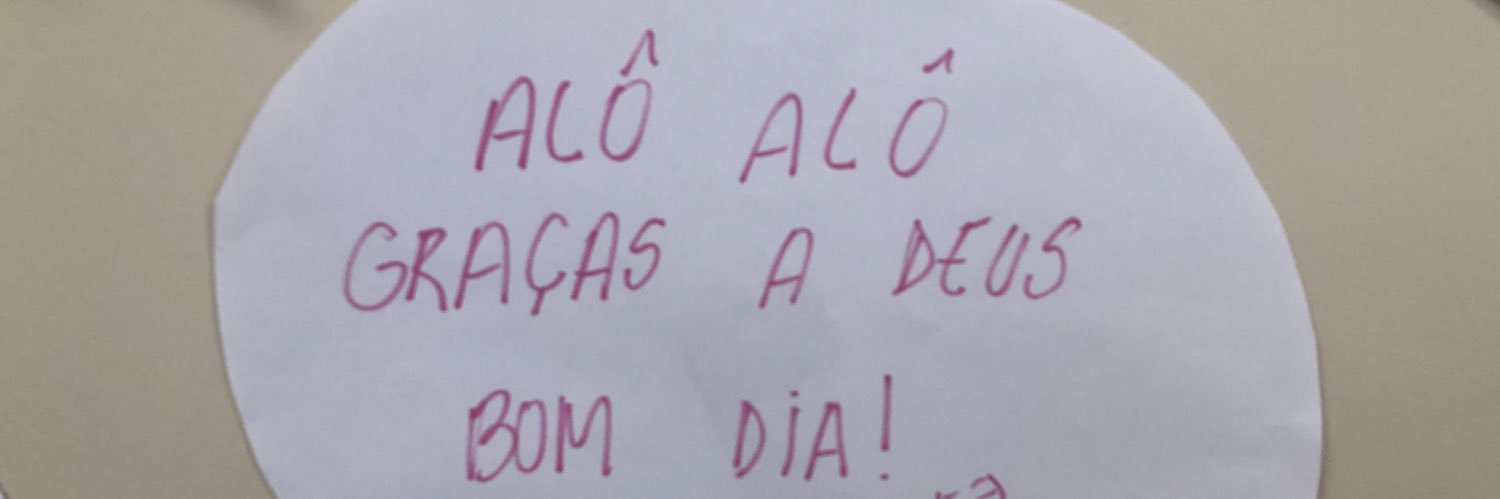 ALÔ ALÔ
GRAÇAS A DEUS
BOM DiA!